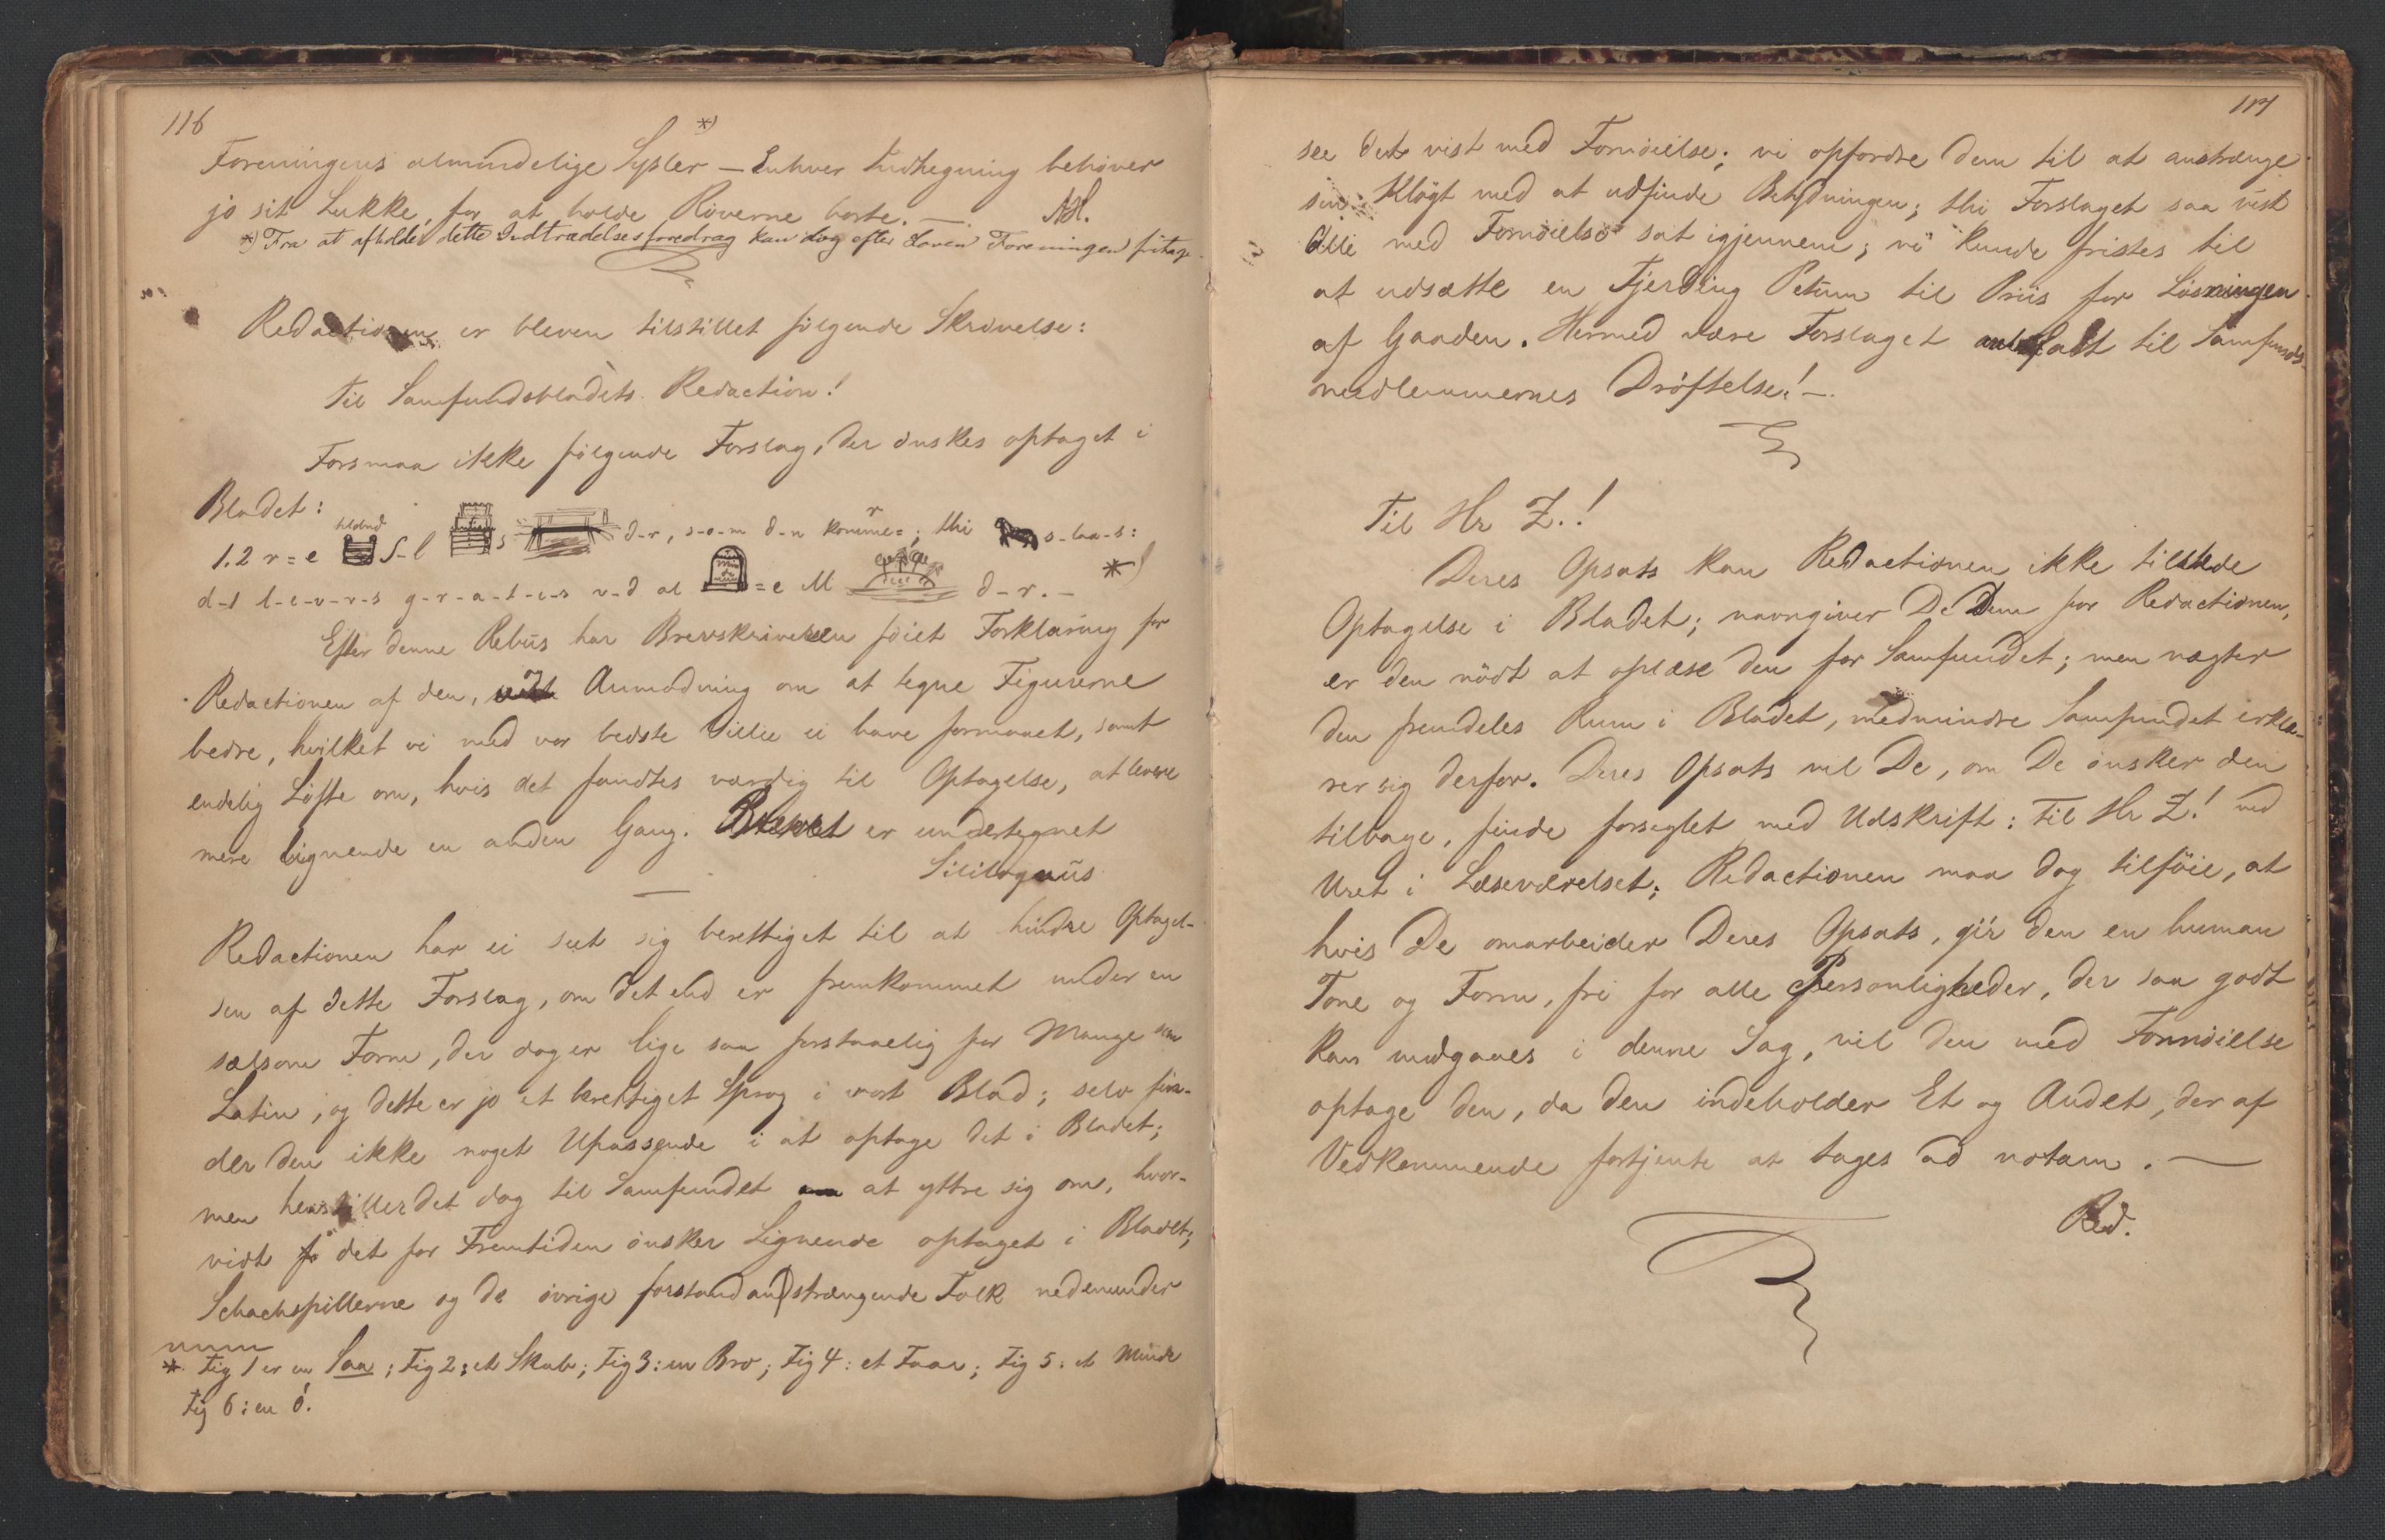 116
*)
Foreningens almindelige Sysler – Enhver Indhegning behøver
jo sit Lukke, for at holde Røverne borte. —
*) Fra at afholde dette Indtrædelsesforedrag kan dog efter Loven Foreningen fritage
Redactionen er bleven tilstillet følgende Skrivelse:
Til Samfundsbladets Redaction!
Forsmaa ikke følgende Forslag, der ønskes optaget i
Bladet:
1.2 r=e S-l s d-r, s-o-m d-n komme=; thi s-laa-s:
r
d-t l-e-v-r-s g-r-a-t-i-s v-d at =e M d-r. – *)
Efter denne Rebus har Brevskriveren föiet Forklaring for
Redactionen af den, og Anmodning om at tegne Figurerne
bedre, hvilket vi med vor bedste Villie ei have formaaet, samt
endelig Löfte om, hvis det fandtes værdig til Optagelse, at levere
mere lignende en anden Gang. Brevet er undertegnet
Sililoquüs
Redactionen har ei seet sig berettiget til at hindre Optagel-
sen af dette Forslag, om det end er fremkommet under en
sælsom Form, der dog er lige saa forstaaelig for Mange som
Latin, og dette er jo et berettiget Sprog i vort Blad; selv fin-
der den ikke noget Upassende i at optage det i Bladet;
men henstiller det dog til Samfundet at yttre sig om, hvor-
vidt det for Fremtiden ønsker Lignende optaget i Bladet;
Schachspillerne og de øvrige forstandanstrængende Folk nedenunder
* Fig 1 er en Saa; Fig 2: et Skab; Fig 3: en Bro; Fig 4: et Faar; Fig 5: et Minde
Fig 6: en ö.
117
see det vist med Fornöielse; vi opfordre dem til at anstrænge
sin Klögt med at udfinde Betydningen; thi Forslaget saa vist
Alle med Fornöielse sat igjennem; vi kunde fristes til
at udsætte en Fjerding Petum til Priis for Løsningen
af Gaaden. Hermed være Forslaget anbefalt til Samfunds-
medlemmernes Dröftelse! –
Til Hr Z.!
Deres Opsats kan Redactionen ikke tilstede
Optagelse i Bladet; navngiver De Dem for Redactionen,
er den nödt at oplæse den for Samfundet; men nægter
den fremdeles Rum i Bladet, medmindre Samfundet erklæ-
rer sig derfor. Deres Opsats vil De, om De ønsker den
tilbage, finde forseglet med Udskrift: Til Hr Z.! ved
Uret i Læseværelset; Redactionen maa dog tilföie, at
hvis De omarbeider Deres Opsats, gi'r den en human
Tone og Form, fri for alle Personligheder, der saa godt
kan undgaaes i denne Sag, vil den med Fornöielse
optage den, da den indeholder Et og Andet, der af
Vedkommende fortjente at tages ad notam. —
Red.